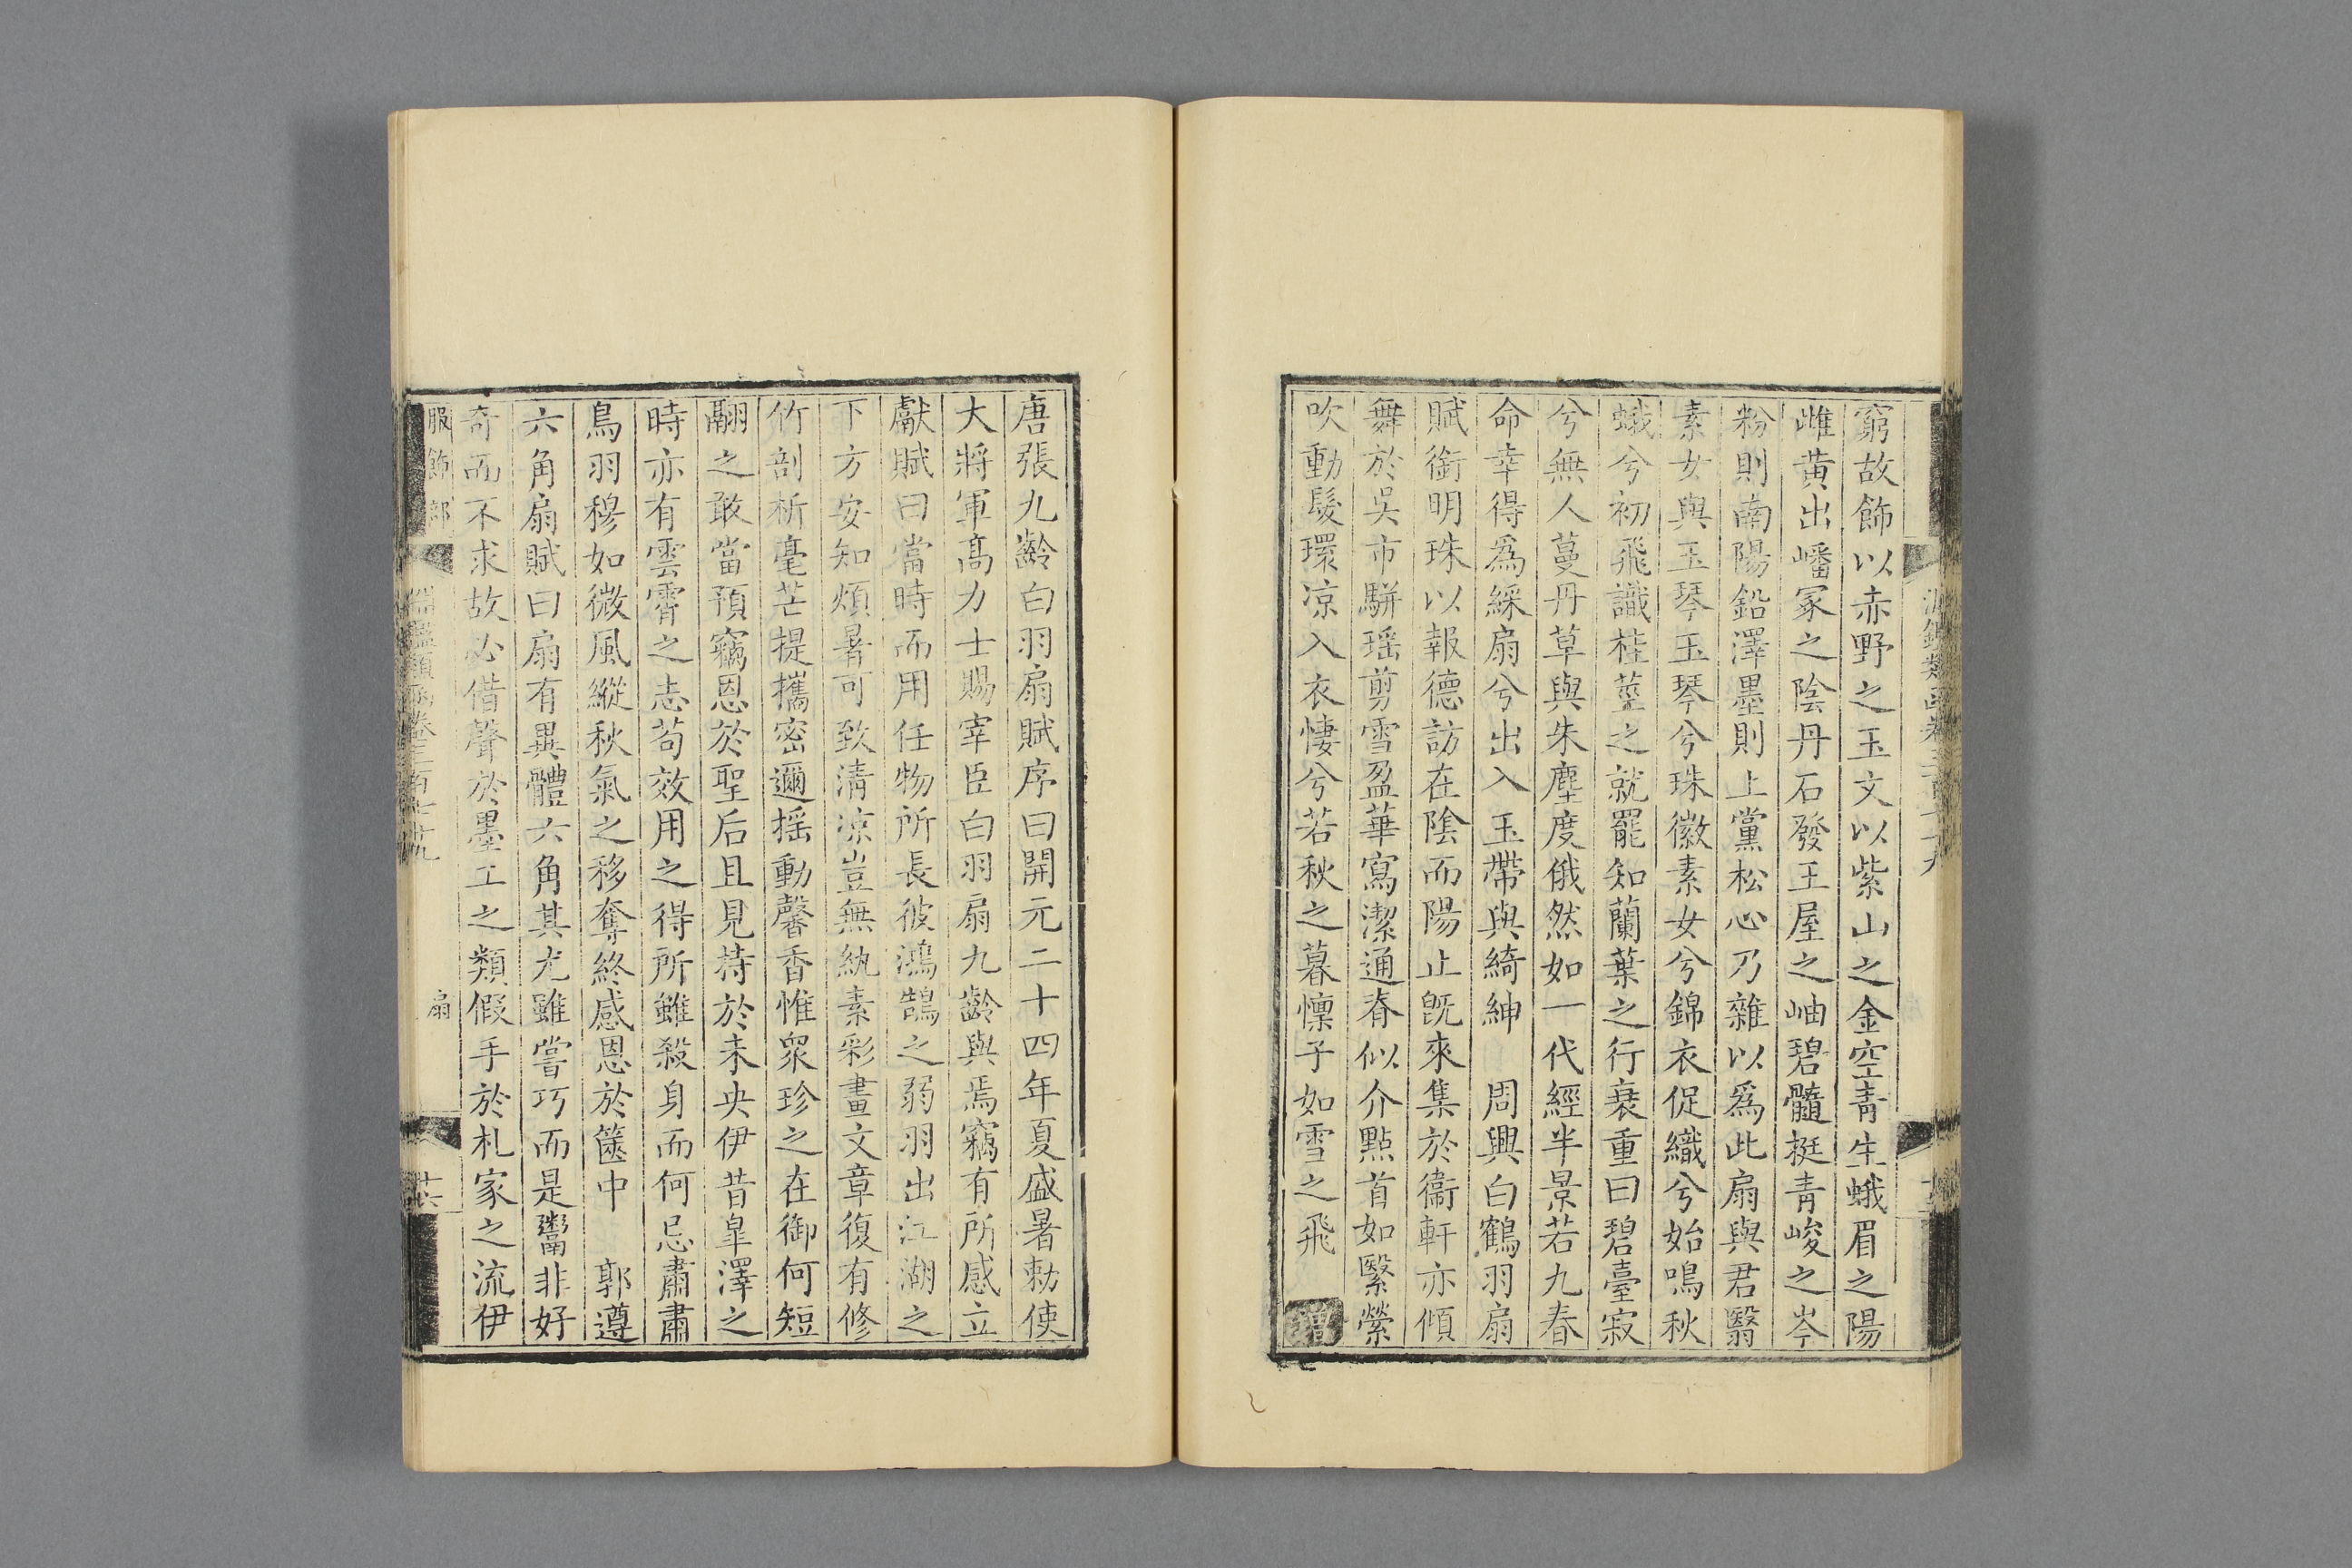 窮故飾以赤野之玉文以紫山之金空青生蛾眉之陽
雌黃出嶓冢之陰丹石發王屋之岫碧髓挺青峻之岑
粉則南陽鉛澤墨則上黨松心乃雜以爲此扇與君翳
素女與玉琴玉琴兮珠徽素女兮錦衣促織兮始鳴秋
蛾兮初飛識桂莖之就罷知蘭葉之行衰重曰碧臺寂
兮無人蔓丹草與朱塵度俄然如一代經半景若九春
命幸得爲綵扇兮出入玉帶與綺紳　周興白鶴羽扇
賦銜明珠以報德訪在陰而陽止旣來集於衞軒亦傾
舞於吳市騈瑶剪雪盈華寫潔通脊似介點首如緊縈
吹動髮環凉入衣悽兮若秋之暮懔子如雪之飛　增
唐張九齡白羽扇賦序曰開元二十四年夏盛暑勅使
大將軍高力士賜宰臣白羽扇九齡與焉竊有所感立
獻賦曰當時而用任物所長彼鴻鵠之弱羽出江湖之
下方安知煩暑可致清凉豈無紈素彩畫文章復有修
竹剖析毫芒提攜密邇揺動馨香惟衆珍之在御何短
翮之敢當預竊恩於聖后且見持於未央伊昔皐澤之
時亦有雲霄之志苟效用之得所雖殺身而何忌肅肅
鳥羽穆如微風縱秋氣之移奪終感恩於篋中　郭遵
六角扇賦曰扇有異體六角其尤雖嘗巧而是鬻非好
奇而不求故必借聲於墨工之類假手於札家之流伊
服飾部　淵鑑類函卷三百七十九　扇　廿六